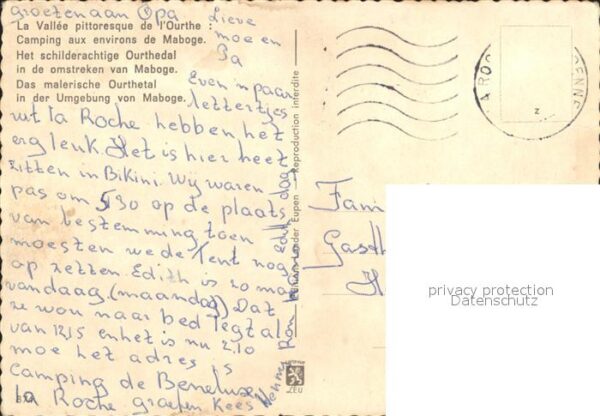 groeten aan Opa
La Vallée pittoresque de l'Ourthe :
Camping aux environs de Maboge.
Het schilderachtige Ourthedal
in de omstreken van Maboge.
Das malerische Ourthetal
in der Umgebung von Maboge.
Lieve
moe en
Pa
Even 'n paar
lettertjes
uit la Roche hebben het
erg leuk. Het is hier heet
zitten in Bikini. Wij waren
pas om 5.30 op de plaats
van bestemming toen
moesten we de Tent nog
op zetten. Edith is zo moe
vandaag (maandag) Dat
ze wou naar bed Legt al
van 12.15 en het is nu 2.10
moe het adres is
Camping de Beneluxe
la Roche groeten Kees
Edith dag
Lander Eupen — Reproduction interdite
Fam
Gasth
H
LAROC
ENNE
z
privacy protection
Datenschutz
LEU